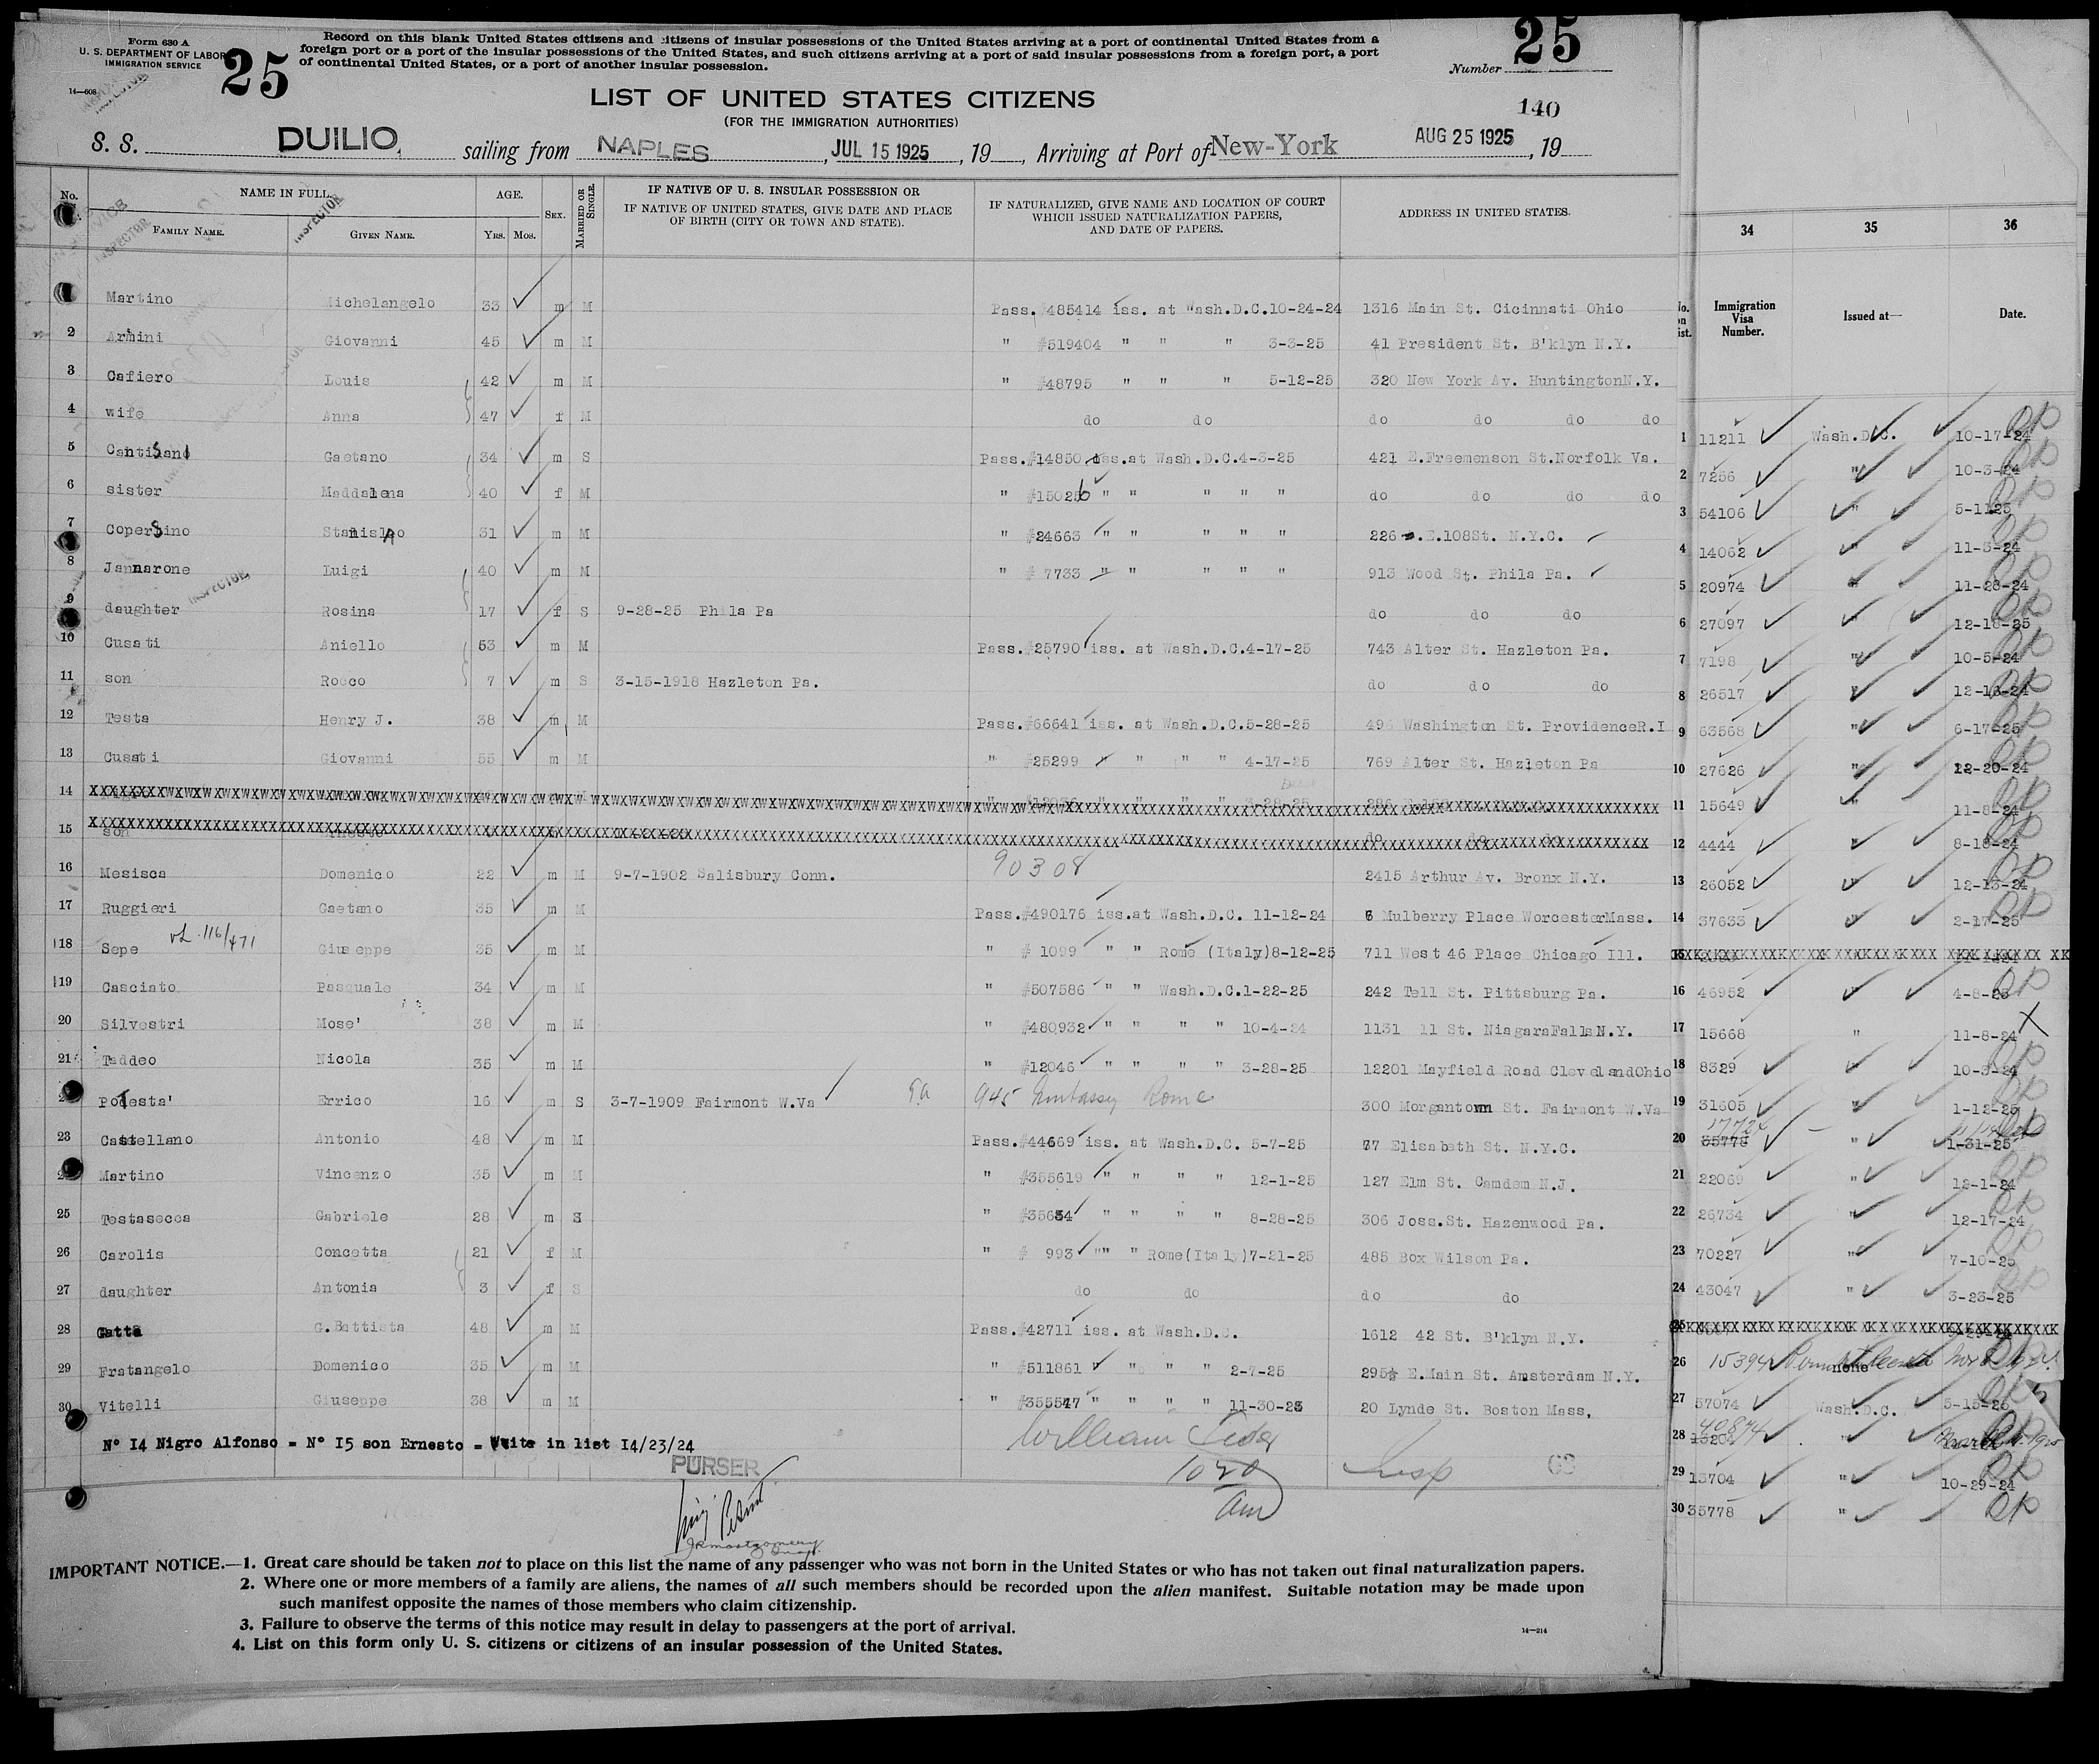 Form 630 A
U. S. DEPARTMENT OF LABOR
IMMIGRATION SERVICE
14—608
25
Record on this blank United States citizens and citizens of insular possessions of the United States arriving at a port of continental United States from a
foreign port or a port of the insular possessions of the United States, and such citizens arriving at a port of said insular possessions from a foreign port, a port
of continental United States, or a port of another insular possession.
Number 25
140
LIST OF UNITED STATES CITIZENS
(FOR THE IMMIGRATION AUTHORITIES)
S. S. DUILIO, sailing from NAPLES, JUL 15 1925, 19 , Arriving at Port of New-York AUG 25 1925, 19
No. NAME IN FULL. AGE. SEX. MARRIED OR SINGLE. IF NATIVE OF U. S. INSULAR POSSESSION OR
IF NATIVE OF UNITED STATES, GIVE DATE AND PLACE
OF BIRTH (CITY OR TOWN AND STATE). IF NATURALIZED, GIVE NAME AND LOCATION OF COURT
WHICH ISSUED NATURALIZATION PAPERS,
AND DATE OF PAPERS. ADDRESS IN UNITED STATES.
FAMILY NAME. GIVEN NAME. YRS. MOS.
INSPECTOR
Martino Michelangelo 33 m M Pass. #485414 iss. at Wash.D.C.10-24-24 1316 Main St. Cicinnati Ohio
2 Armini Giovanni 45 m M " #519404 " " " 3-3-25 41 President St. B'klyn N.Y.
3 Cafiero Louis 42 m M " #48795 " " " 5-12-25 320 New York Av. HuntingtonN.Y.
4 wife Anna 47 f M do do do do do do
5 Gaetano 34 m S Pass.#14850 iss.at Wash.D.C.4-3-25 421 E.Freemenson St.Norfolk Va.
6 sister Maddalena 40 f M " #15026 " " " " " do do do do
7 Copersino Stanislao 31 m M " #24663 " " " " " 226 E.108St. N.Y.C.
8 Jannarone Luigi 40 m M " # 7733 " " " " " 913 Wood St. Phila Pa.
9 daughter Rosina 17 f S 9-28-25 Phila Pa do do do
10 Cusati Aniello 53 m M Pass.#25790 iss. at Wash.D.C.4-17-25 743 Alter St. Hazleton Pa.
11 son Rocco 7 m S 3-15-1918 Hazleton Pa. do do do
12 Testa Henry J. 38 m M Pass.#66641 iss. at Wash.D.C.5-28-25 496 Washington St. ProvidenceR.I
13 Cusati Giovanni 55 m M " #25299 " " " " 4-17-25 769 Alter St. Hazleton Pa
14
15 son do do do
16 Mesisca Domenico 22 m M 9-7-1902 Salisbury Conn. 90308 2415 Arthur Av. Bronx N.Y.
17 Ruggieri Gaetano 35 m M Pass.#490176 iss.at Wash.D.C. 11-12-24 6 Mulberry Place WorcesterMass.
18 Sepe vL.116/471 Giuseppe 35 m M " # 1099 " " Rome (Italy)8-12-25 711 West 46 Place Chicago Ill.
19 Casciato Pasquale 34 m M " #507586 " " Wash.D.C.1-22-25 242 Tell St. Pittsburg Pa.
20 Silvestri Mose' 38 m M " #480932 " " " " 10-4-24 1131 11 St. NiagaraFallsN.Y.
21 Taddeo Nicola 35 m M " #12046 " " " " 3-28-25 12201 Mayfield Road ClevelandOhio
Podesta' Errico 16 m S 3-7-1909 Fairmont W.Va 945 Embassy Rome 300 Morgantown St. Fairmont W.Va
23 Castellano Antonio 48 m M Pass.#44669 iss. at Wash.D.C. 5-7-25 77 Elisabeth St. N.Y.C.
Martino Vincenzo 35 m M " #355619 " " " " 12-1-25 127 Elm St. Camdem N.J.
25 Testasecca Gabriele 28 m S " #35654 " " " " 8-28-25 306 Joss.St. Hazenwood Pa.
26 Carolis Concetta 21 f M " # 993 "" " Rome(Italy)7-21-25 485 Box Wilson Pa.
27 daughter Antonia 3 f S do do do do
28 Gatta G.Battista 48 m M Pass.#42711 iss. at Wash.D.C. 1612 42 St. B'klyn N.Y.
29 Fratangelo Domenico 35 m M " #511861 " " " " 2-7-25 295½ E.Main St. Amsterdam N.Y.
30 Vitelli Giuseppe 38 m M " #355547 " " " " 11-30-23 20 Lynde St. Boston Mass,
Nº 14 Nigro Alfonso = Nº 15 son Ernesto = Write in list 14/23/24
PURSER
William
1020
am
Insp
IMPORTANT NOTICE.—1. Great care should be taken not to place on this list the name of any passenger who was not born in the United States or who has not taken out final naturalization papers.
2. Where one or more members of a family are aliens, the names of all such members should be recorded upon the alien manifest. Suitable notation may be made upon
such manifest opposite the names of those members who claim citizenship.
3. Failure to observe the terms of this notice may result in delay to passengers at the port of arrival.
4. List on this form only U. S. citizens or citizens of an insular possession of the United States.
14—214
34 35 36
No. on List. Immigration Visa Number. Issued at— Date.
1 11211 Wash.D.C. 10-17-24
2 7256 " 10-3-24
3 54106 " 5-1125
4 14062 " 11-3-24
5 20974 " 11-28-24
6 27097 " 12-18-25
7 7198 " 10-5-24
8 26517 " 12-16-24
9 63568 " 6-17-25
10 27626 " 12-20-24
11 15649 " 11-8-24
12 4444 " 8-18-24
13 26052 " 12-13-24
14 37633 " 2-17-25
15
16 46952 " 4-8-25
17 15668 " 11-8-24
18 8329 " 10-8-24
19 31605 " 1-12-25
20 35778 " 1-31-25
21 22069 " 12-1-24
22 26734 " 12-17-24
23 70227 " 7-10-25
24 43047 " 3-23-25
25
26 15394 none
27 57074 Wash.D.C. 5-15-25
28 40874 "
29 13704 " 10-29-24
30 35778 "